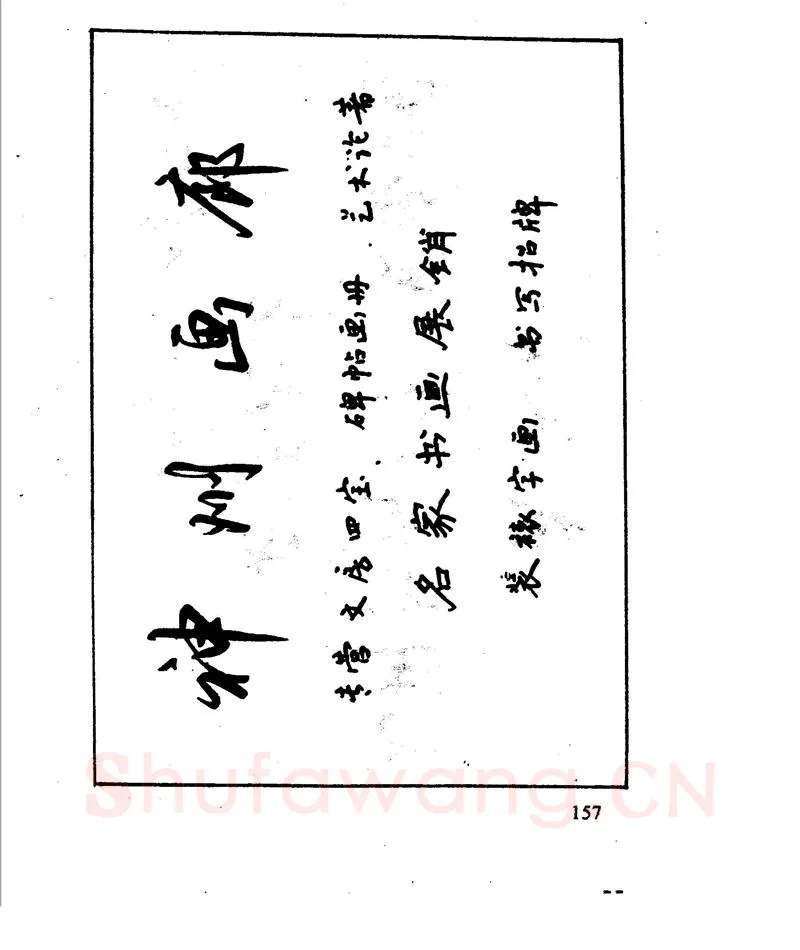 神州画廊
专营文房四宝、碑帖画册、艺术论著
名家书画展销
装裱字画 书写招牌
Shufawang.CN
157